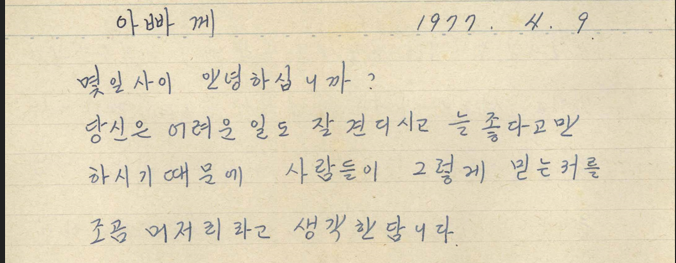 아빠 께 1977. 4. 9
몇일사이 안녕하십니까?
당신은 어려운 일도 잘 견디시고 늘 좋다고만
하시기 때문에 사람들이 그렇게 믿는거를
조곰 머저리라고 생각한답니다